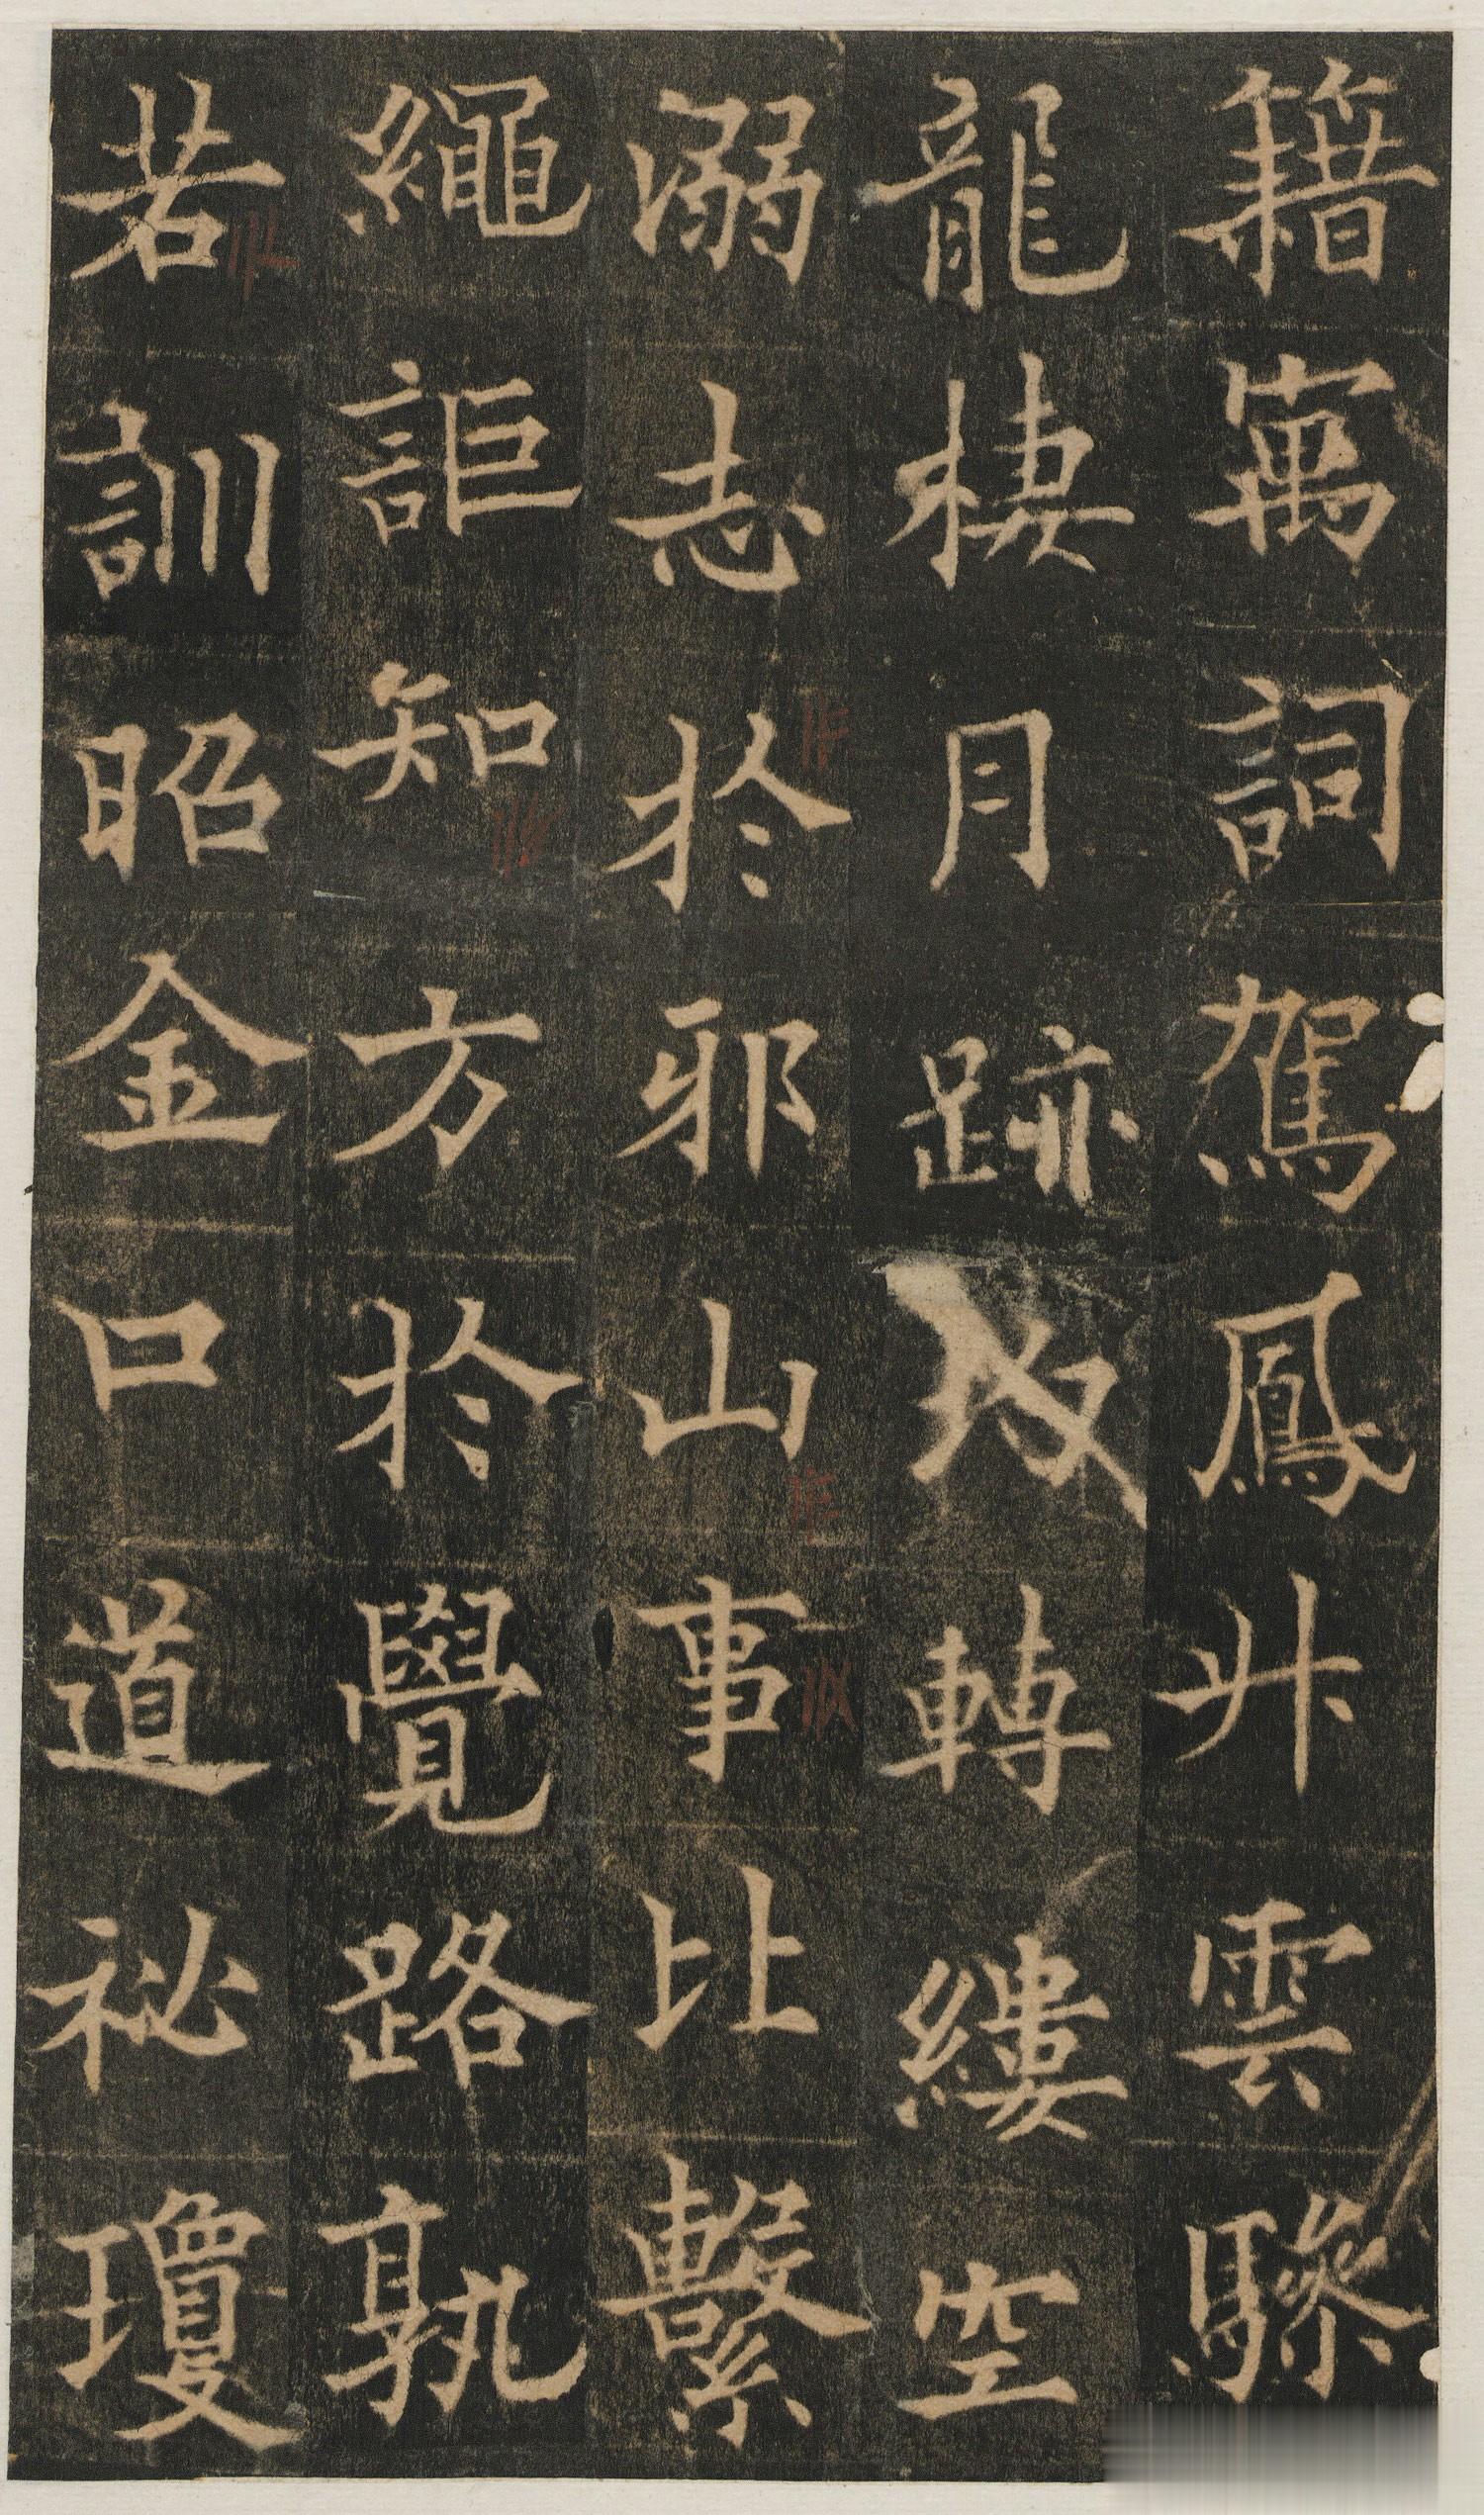 籍寓詞駕鳳升雲驂
龍棲月跡轉縷空
溺志於邪山事比繫
繩詎知方於覺路孰
若訓昭金口道祕瓊